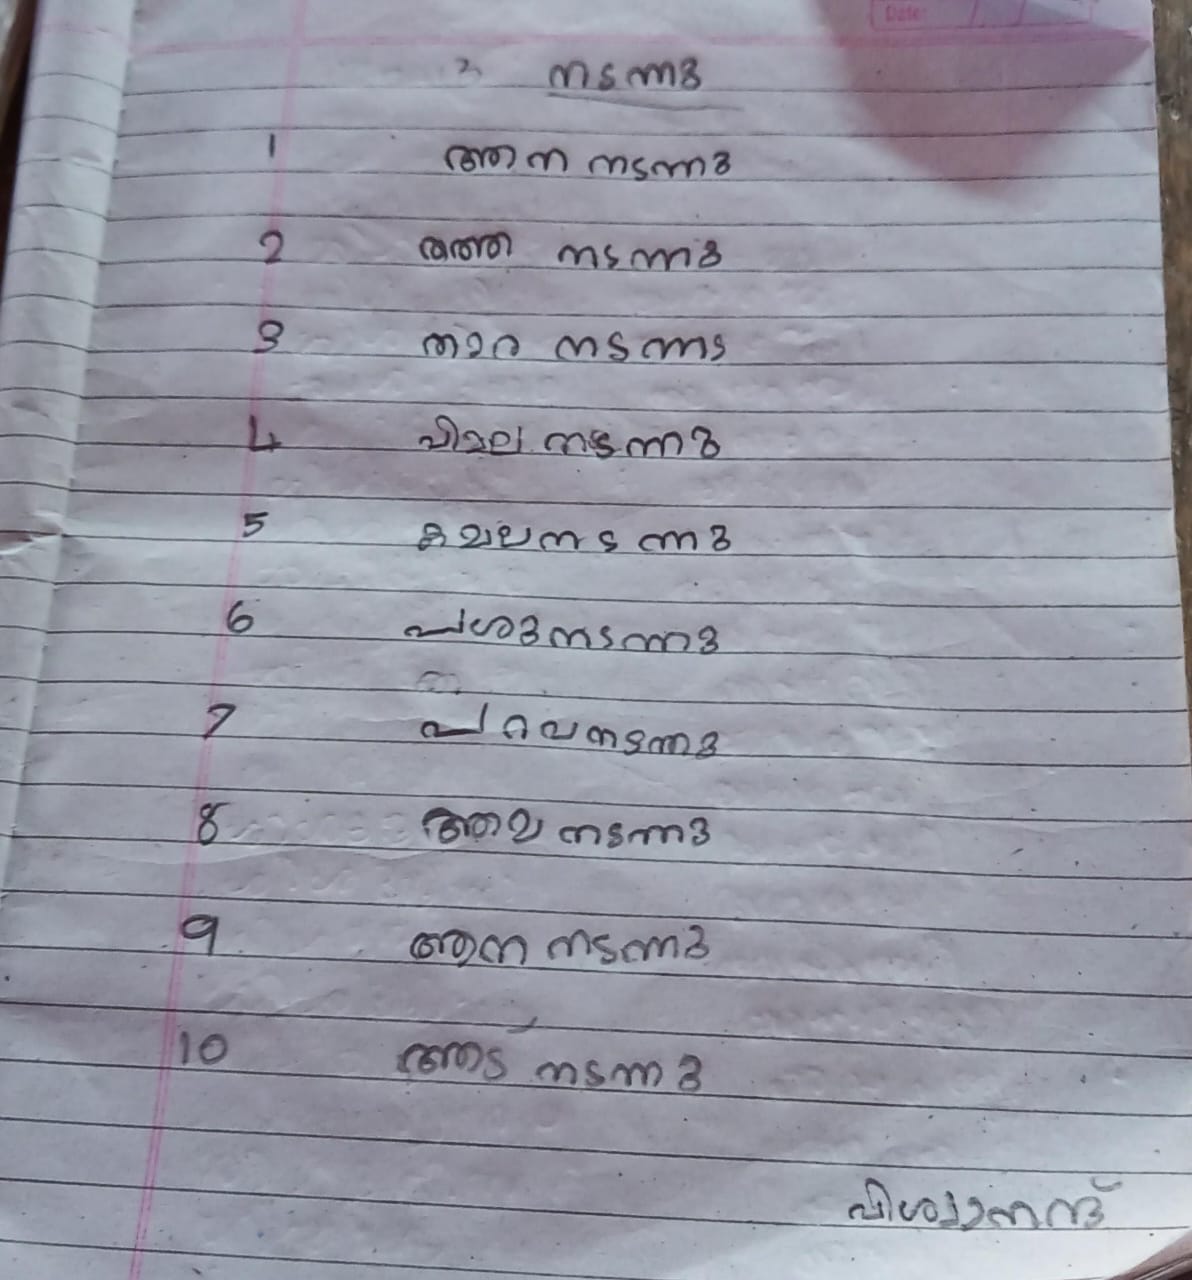 നടന്നു
1 ആന നടന്നു
2 തത്ത നടന്നു
3 താര നടന്നു
4 വിമല നടന്നു
5 കമല നടന്നു
6 പശു നടന്നു
7 പറവ നടന്നു
8 ആമ നടന്നു
9 ആന നടന്നു
10 ആട് നടന്നു
വിശ്വാനന്ദ്